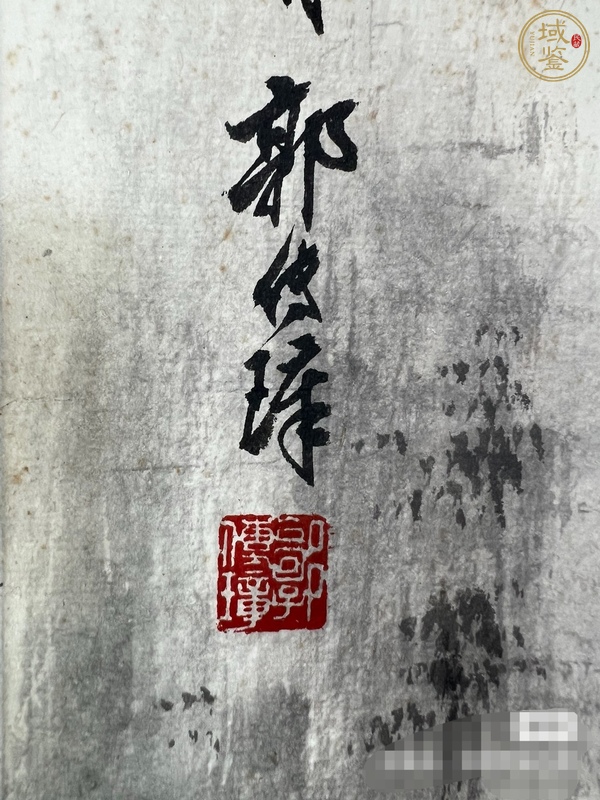 郭传璋
郭傳璋
域鉴